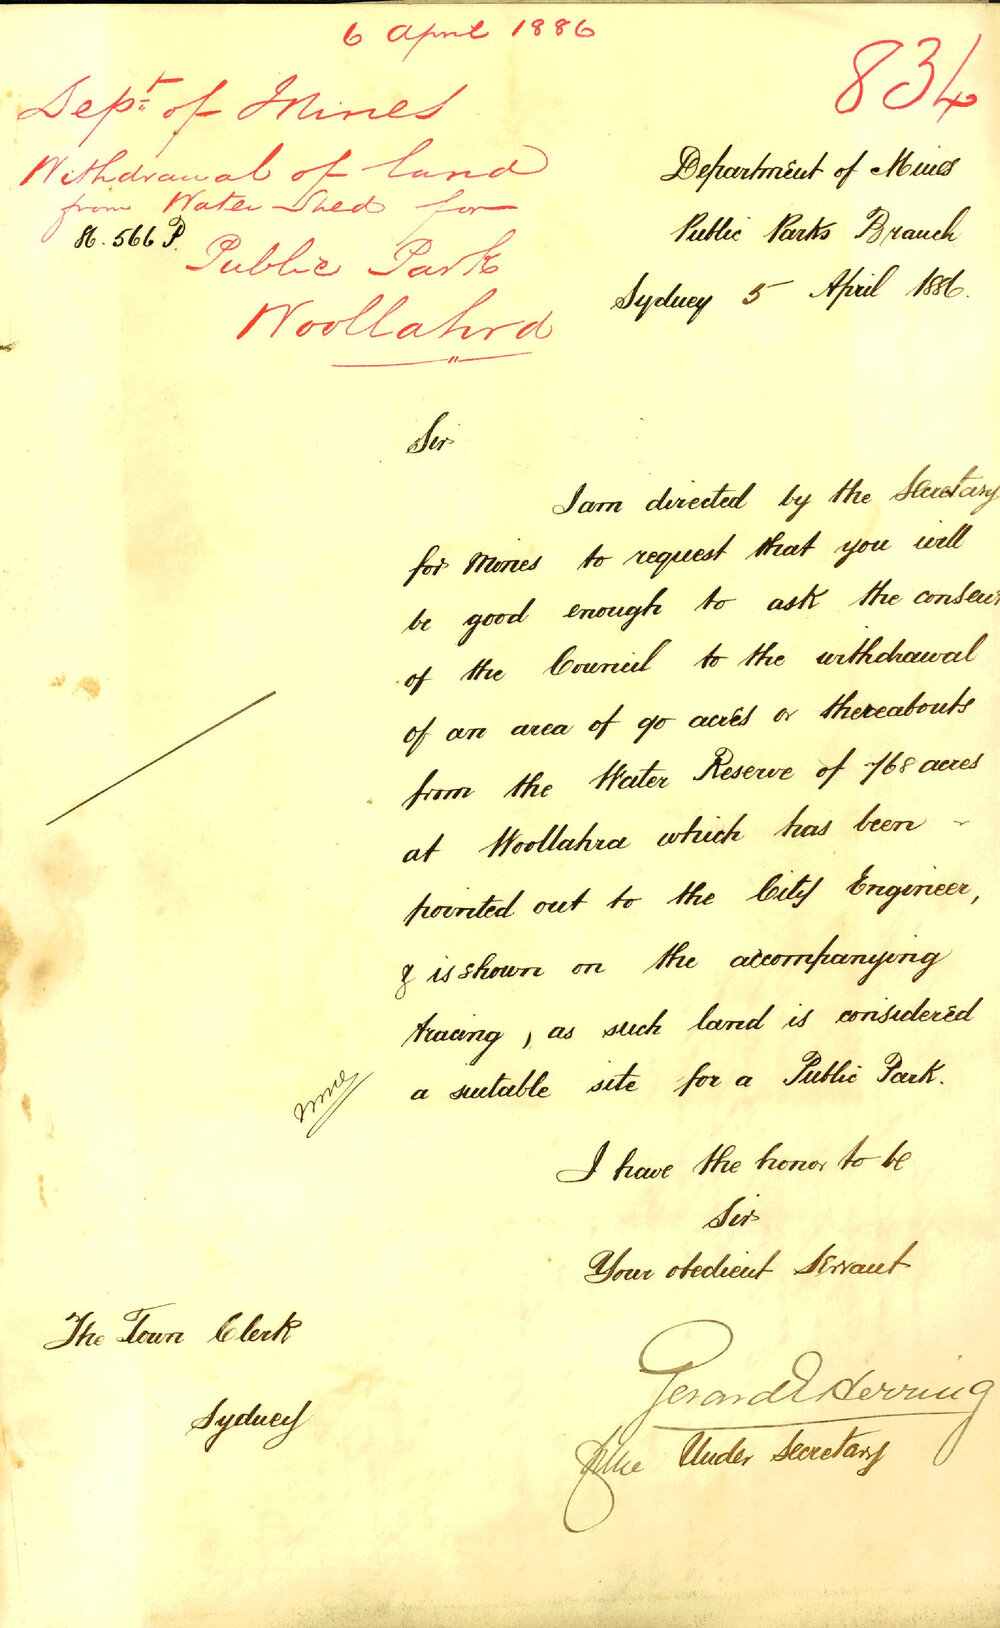 6 April 1886
834
Dept of Mines
Withdrawal of land
from Water Shed for
86. 566 P.
Public Park
Woollahra
Department of Mines
Public Parks Branch
Sydney 5 April 1886.
Sir
I am directed by the Secretary
for Mines to request that you will
be good enough to ask the consent
of the Council to the withdrawal
of an area of 90 acres or thereabouts
from the Water Reserve of 768 acres
at Woollahra which has been
pointed out to the City Engineer,
& is shown on the accompanying
tracing, as such land is considered
a suitable site for a Public Park.
I have the honor to be
Sir
Your obedient servant
Gerard E Herring
for the Under Secretary
The Town Clerk
Sydney